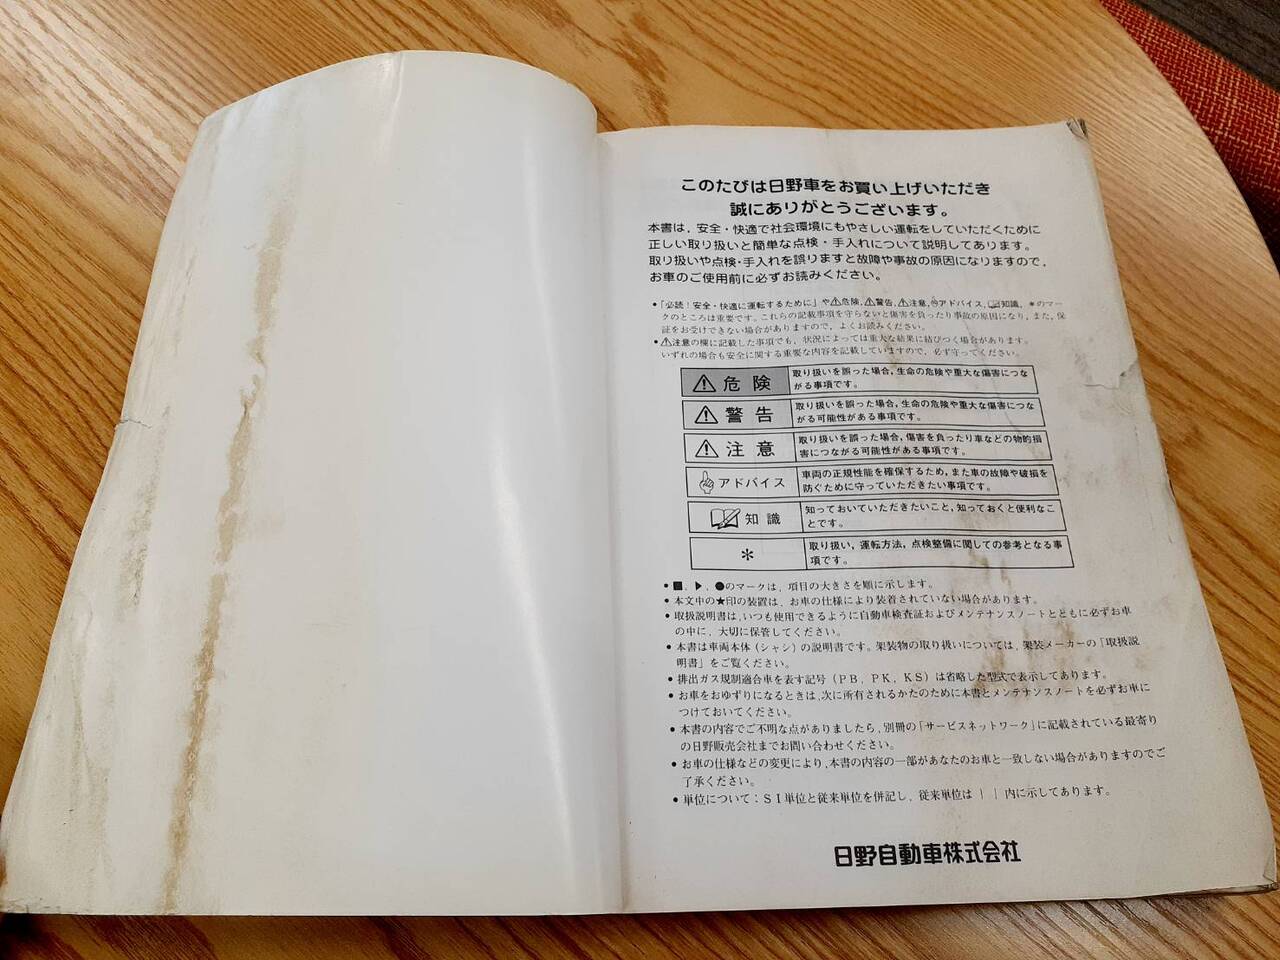 このたびは日野車をお買い上げいただき
誠にありがとうございます。
本書は，安全・快適で社会環境にもやさしい運転をしていただくために
正しい取り扱いと簡単な点検・手入れについて説明してあります。
取り扱いや点検・手入れを誤りますと故障や事故の原因になりますので，
お車のご使用前に必ずお読みください。
●「必読！安全・快適に運転するために」や⚠危険，⚠警告，⚠注意，☝アドバイス，📖知識，＊のマー
クのところは重要です。これらの記載事項を守らないと傷害を負ったり事故の原因になり，また，保
証をお受けできない場合がありますので，よくお読みください。
●⚠注意の欄に記載した事項でも，状況によっては重大な結果に結びつく場合があります。
いずれの場合も安全に関する重要な内容を記載していますので，必ず守ってください。
⚠危険 取り扱いを誤った場合，生命の危険や重大な傷害につな
がる事項です。
⚠警告 取り扱いを誤った場合，生命の危険や重大な傷害につな
がる可能性がある事項です。
⚠注意 取り扱いを誤った場合，傷害を負ったり車などの物的損
害につながる可能性がある事項です。
アドバイス 車両の正規性能を確保するため，また車の故障や破損を
防ぐために守っていただきたい事項です。
知識 知っておいていただきたいこと，知っておくと便利なこ
とです。
＊ 取り扱い，運転方法，点検整備に関しての参考となる事
項です。
●■，▶，●のマークは，項目の大きさを順に示します。
●本文中の★印の装置は，お車の仕様により装着されていない場合があります。
●取扱説明書は，いつも使用できるように自動車検査証およびメンテナンスノートとともに必ずお車
の中に，大切に保管してください。
●本書は車両本体（シャシ）の説明書です。架装物の取り扱いについては，架装メーカーの「取扱説
明書」をご覧ください。
●排出ガス規制適合車を表す記号（PB，PK，KS）は省略した型式で表示してあります。
●お車をおゆずりになるときは，次に所有されるかたのために本書とメンテナンスノートを必ずお車に
つけておいてください。
●本書の内容でご不明な点がありましたら，別冊の「サービスネットワーク」に記載されている最寄り
の日野販売会社までお問い合わせください。
●お車の仕様などの変更により，本書の内容の一部があなたのお車と一致しない場合がありますのでご
了承ください。
●単位について：ＳＩ単位と従来単位を併記し，従来単位は｛ ｝内に示してあります。
日野自動車株式会社